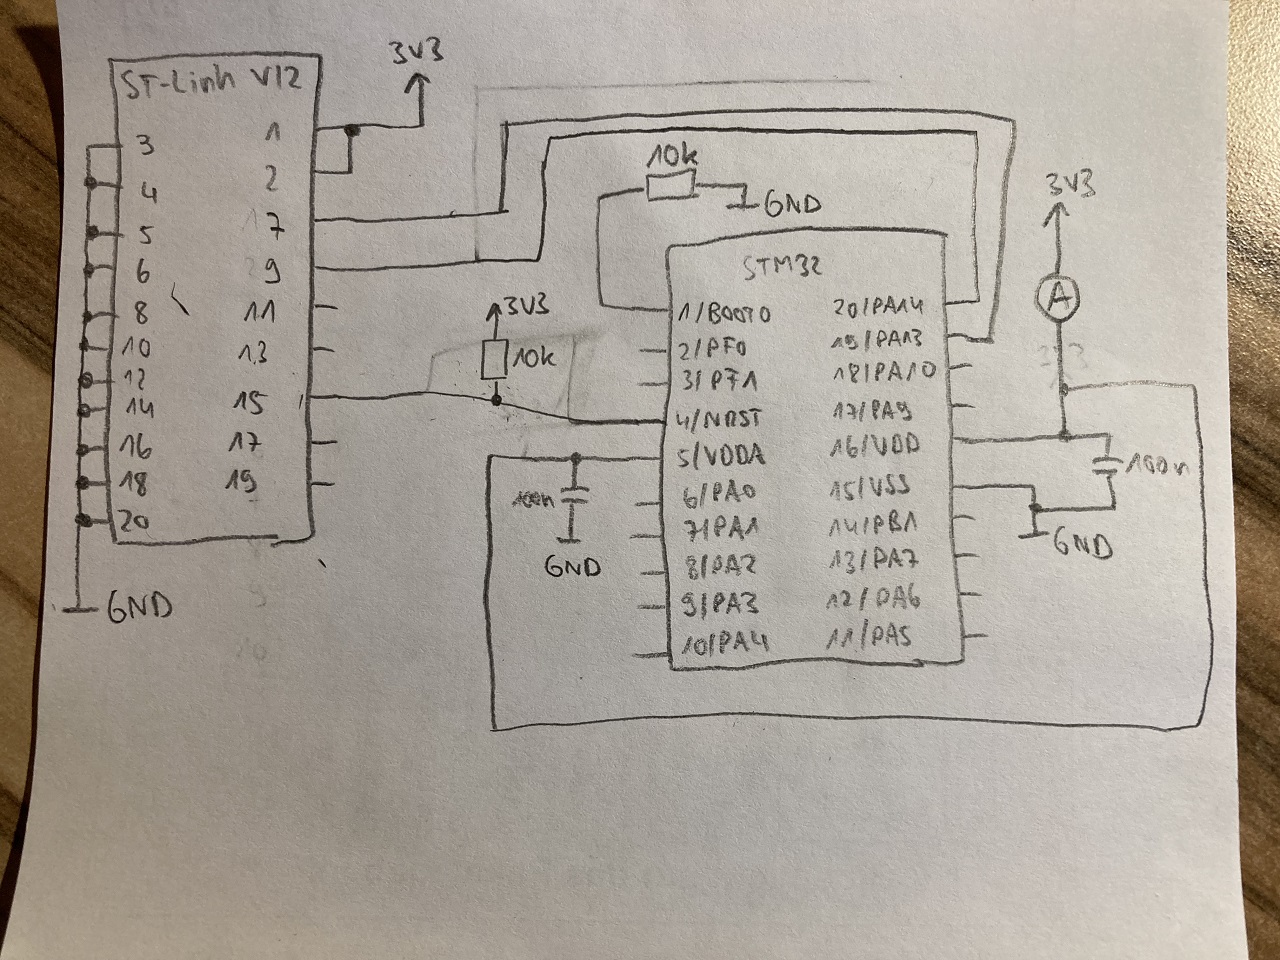 ST-Link V/2
3V3
1
2
17
9
11
13
15
17
19
3
4
5
6
8
10
12
14
16
18
20
GND
3V3
10k
10k
GND
STM32
1/BOOT0
2/PF0
3/PF1
4/NRST
5/VDDA
6/PA0
7/PA1
8/PA2
9/PA3
10/PA4
20/PA14
19/PA13
18/PA10
17/PA9
16/VDD
15/VSS
14/PB1
13/PA7
12/PA6
11/PA5
100n
GND
3V3
A
100n
GND